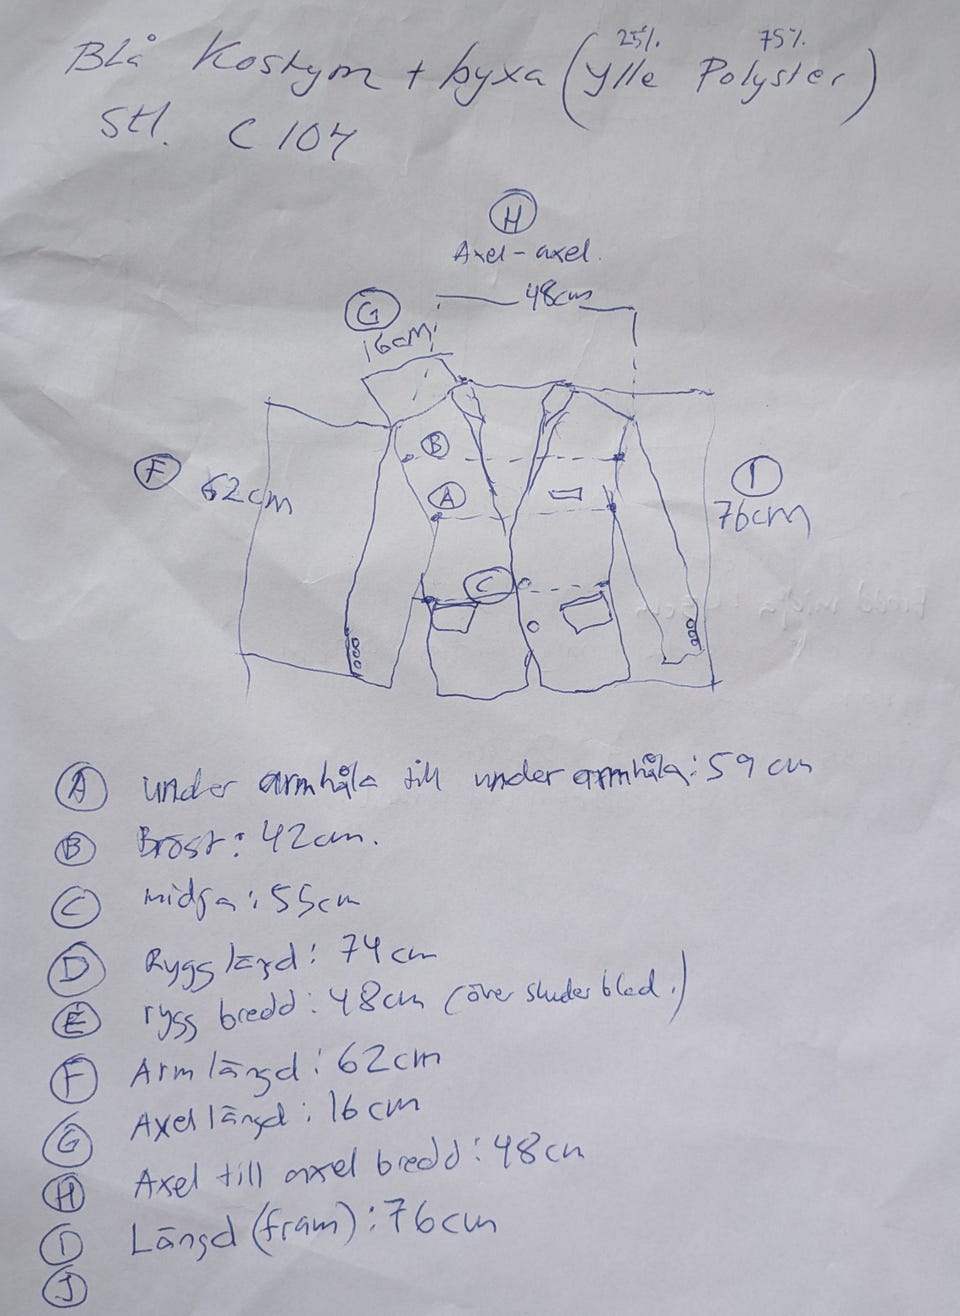 25% 75%
Blå Kostym + byxa (Ylle Polyster)
Stl. C 104
H
Axel-axel.
48cm
G
16cm
B
F
62cm
A
I
76cm
C
A under armhåla till under armhåla: 59 cm
B Bröst: 42cm.
C midja: 55cm
D Rygg längd: 74cm
E rygg bredd: 48cm (över skulderblad.)
F Arm längd: 62cm
G Axel längd: 16cm
H Axel till axel bredd: 48cm
I Längd (fram): 76cm
J